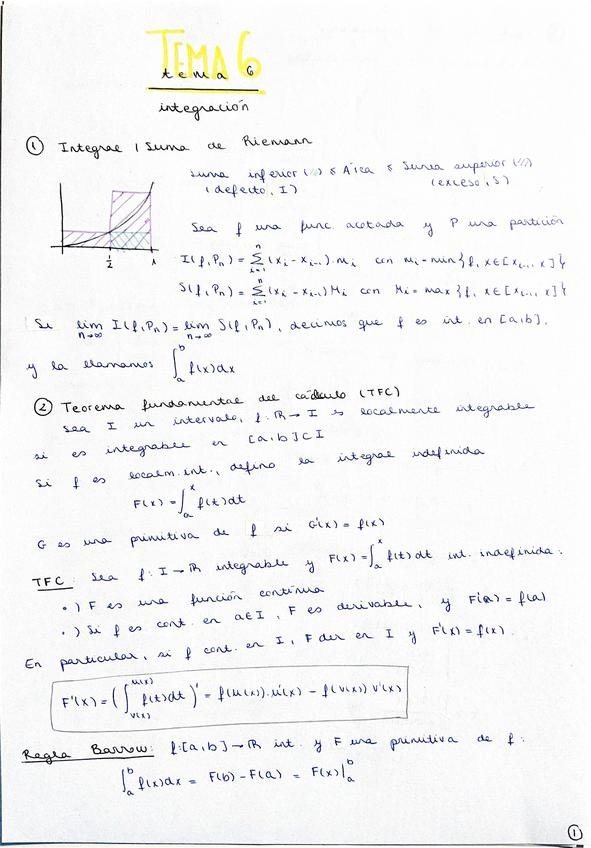 TEMA 6
tema 6
integración
① Integral / Suma de Riemann
Suma inferior (///) ≤ Área ≤ Suma superior (///)
(defecto, I) (exceso, S)
Sea f una func. acotada y P una partición
1/2 1
I(f,Pₙ) = ∑ⁿᵢ₌₁ (xᵢ - xᵢ₋₁)·mᵢ con mᵢ = min{f, x∈[xᵢ₋₁, x]}
S(f,Pₙ) = ∑ⁿᵢ₌₁ (xᵢ - xᵢ₋₁) Mᵢ con Mᵢ = max{f, x∈[xᵢ₋₁, x]}
Si lim n→∞ I(f,Pₙ) = lim n→∞ S(f,Pₙ), decimos que f es int. en [a,b],
y la llamamos ∫ₐᵇ f(x)dx
② Teorema fundamental del cálculo (TFC)
Sea I un intervalo, f: ℝ → I es localmente integrable
si es integrable en [a,b]⊂I
Si f es localm. int., defino la integral indefinida
F(x) = ∫ₐˣ f(t)dt
G es una primitiva de f si G'(x) = f(x)
TFC: Sea f: I → ℝ integrable y F(x) = ∫ₐˣ f(t)dt int. indefinida:
•) F es una función continua
•) Si f es cont. en a∈I, F es derivable, y F'(a) = f(a)
En particular, si f cont. en I, F der en I y F'(x) = f(x).
F'(x) = (∫_{v(x)}^{u(x)} f(t)dt)' = f(u(x))·u'(x) - f(v(x)) v'(x)
Regla Barrow: f:[a,b] → ℝ int. y F una primitiva de f:
∫ₐᵇ f(x)dx = F(b) - F(a) = F(x)|ₐᵇ
①